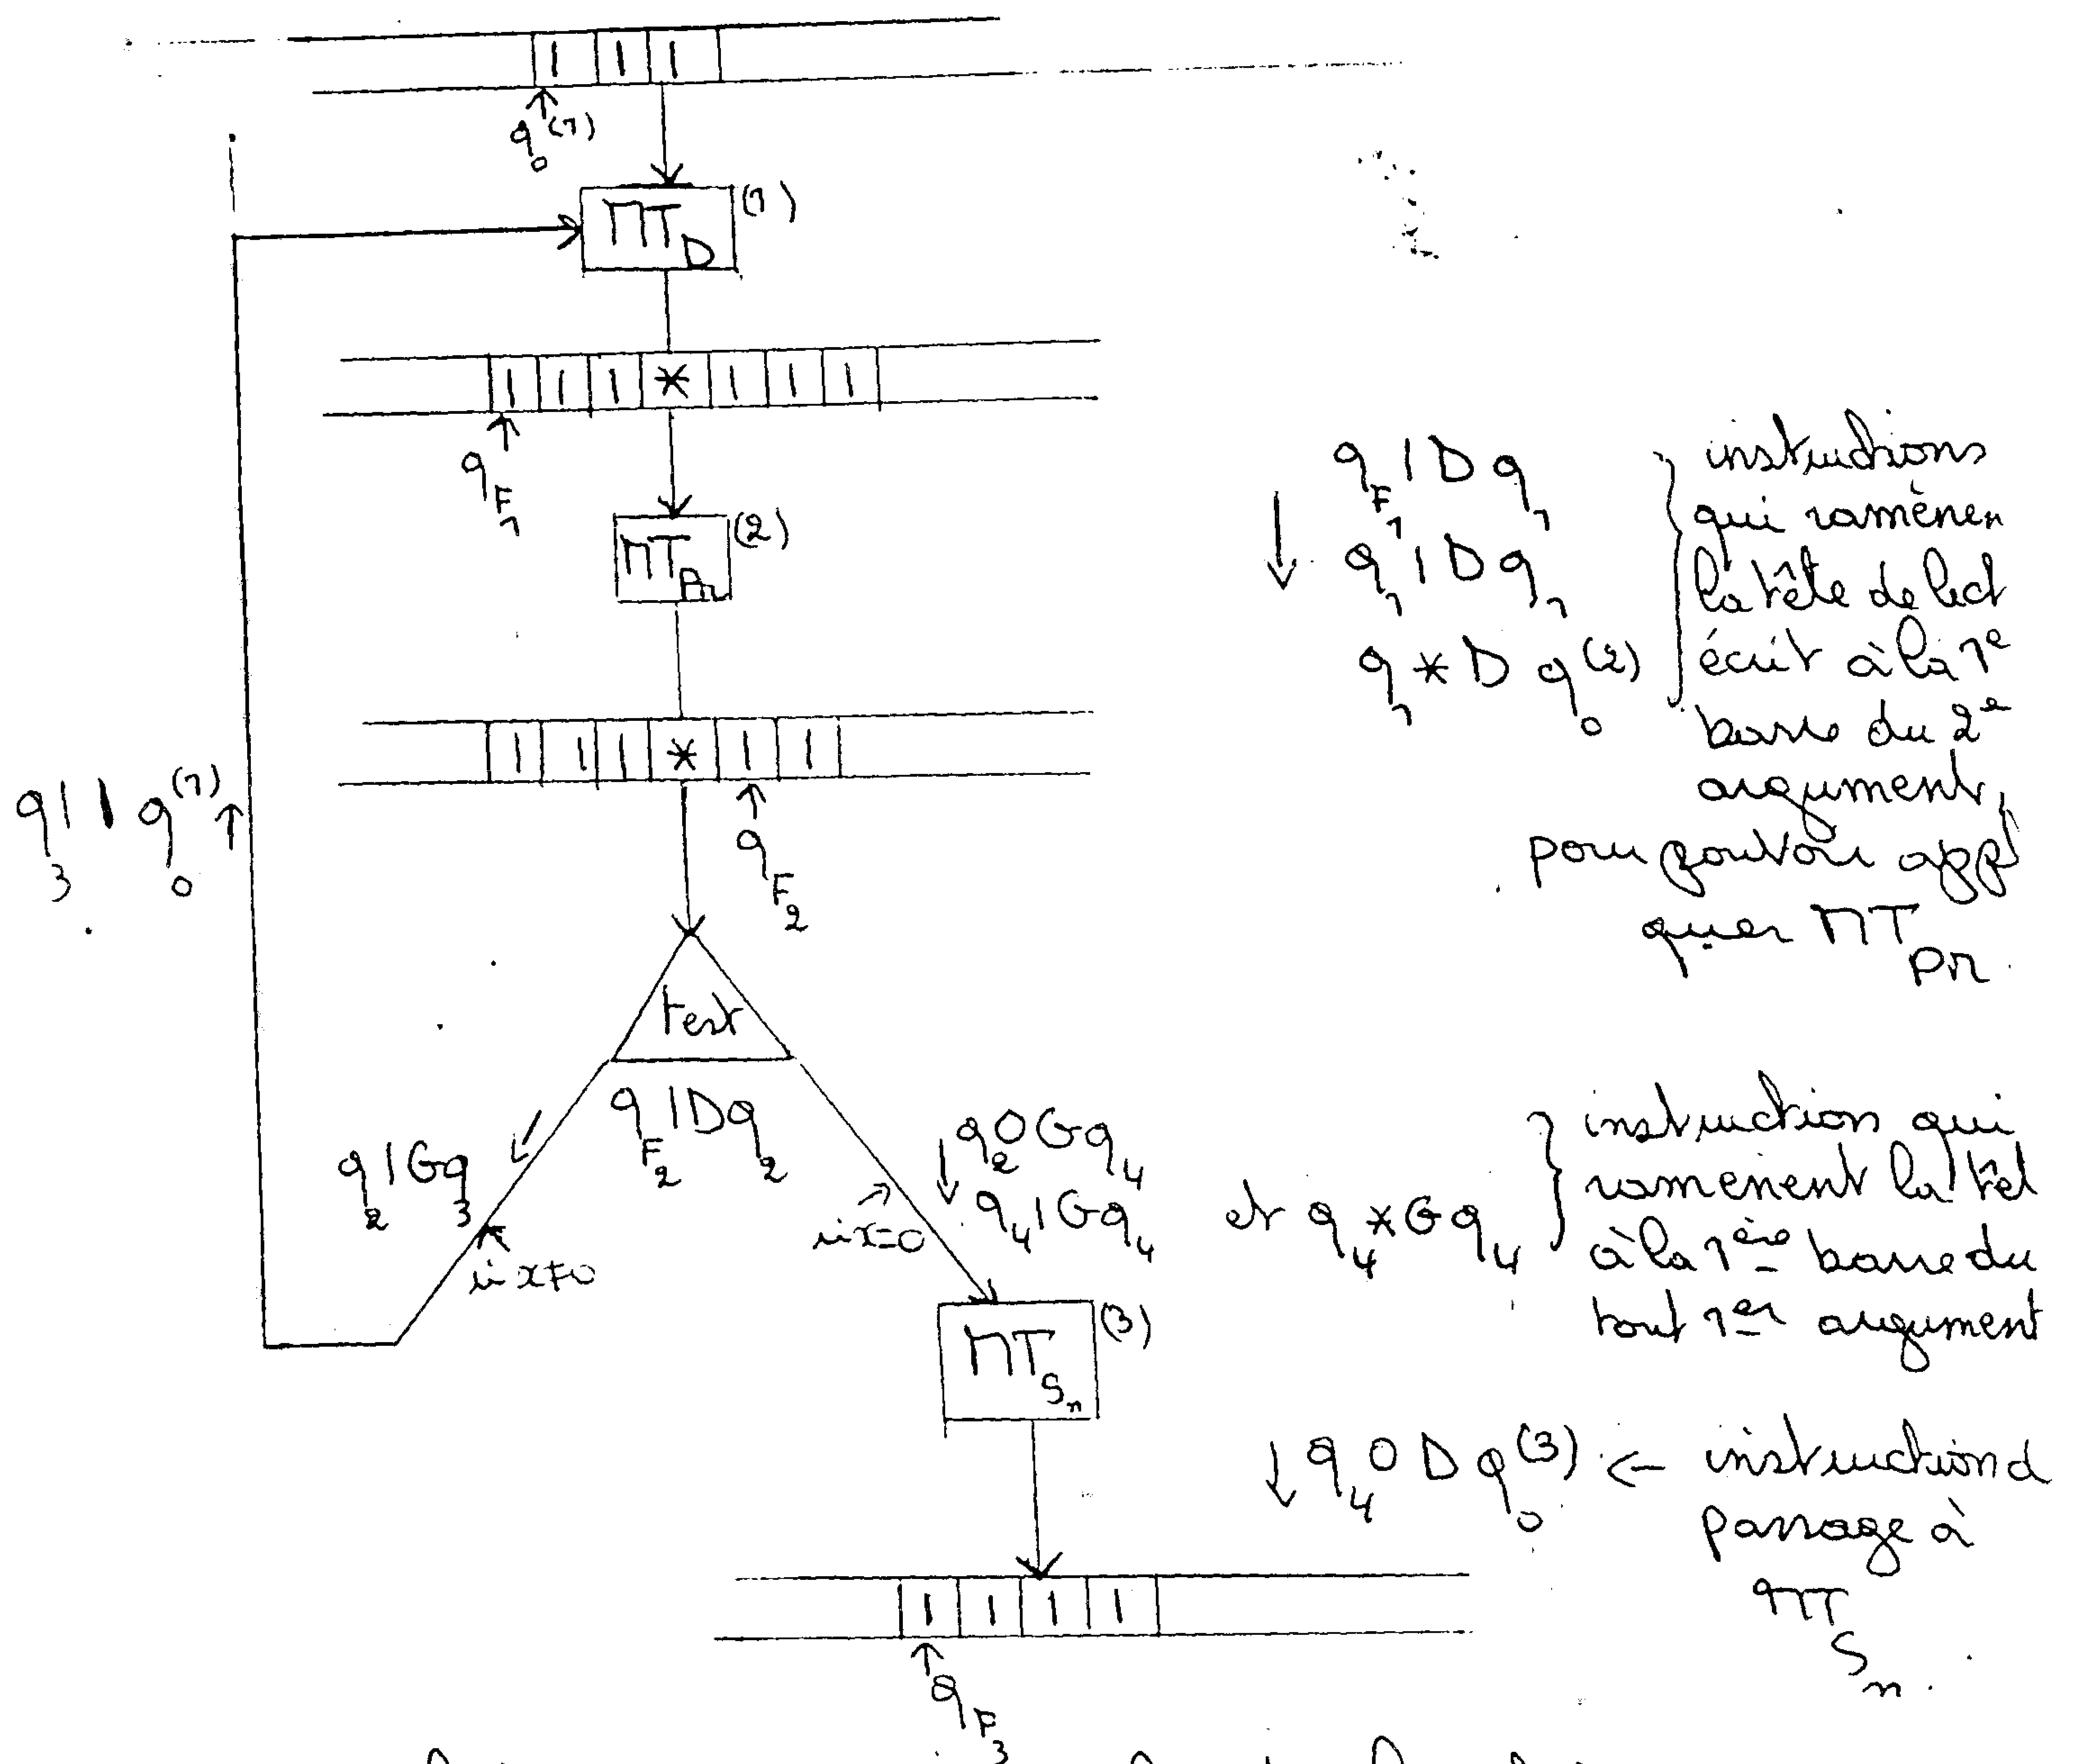 | | |
q₀⁽¹⁾
MT_D ⁽¹⁾
| | | * | | |
q_F₁
MT_Pr ⁽²⁾
q_F₁ | D q₁
q₁ | D q₁
q₁ * D q₀⁽²⁾
instructions
qui ramènen
la tête de lect
écrit à la 1e
barre du 2e
argument,
pour pouvoir appl
quer MT_Pr.
| | | * | |
q_F₂
q₃ | | q₀⁽¹⁾
test
q_F₂ | D q₂
q₂ | G q₃
si x≠0
si x=0
q₂ 0 G q₄
q₄ | G q₄ et q₄ * G q₄
instruction qui
ramènent la têt
à la 1ère barre du
tout 1er argument
MT_Sn ⁽³⁾
q₄ 0 D q₀⁽³⁾ ← instruction d
passage à
MT_Sn.
| | | |
q_F₃